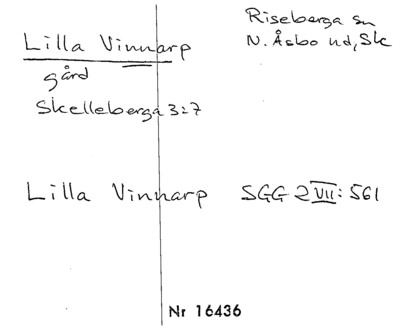 Lilla Vinnarp
gård
Skelleberga 3:7
Riseberga sn
N. Åsbo hd, Sk
Lilla Vinnarp SGG 2 VII: 561
Nr 16436